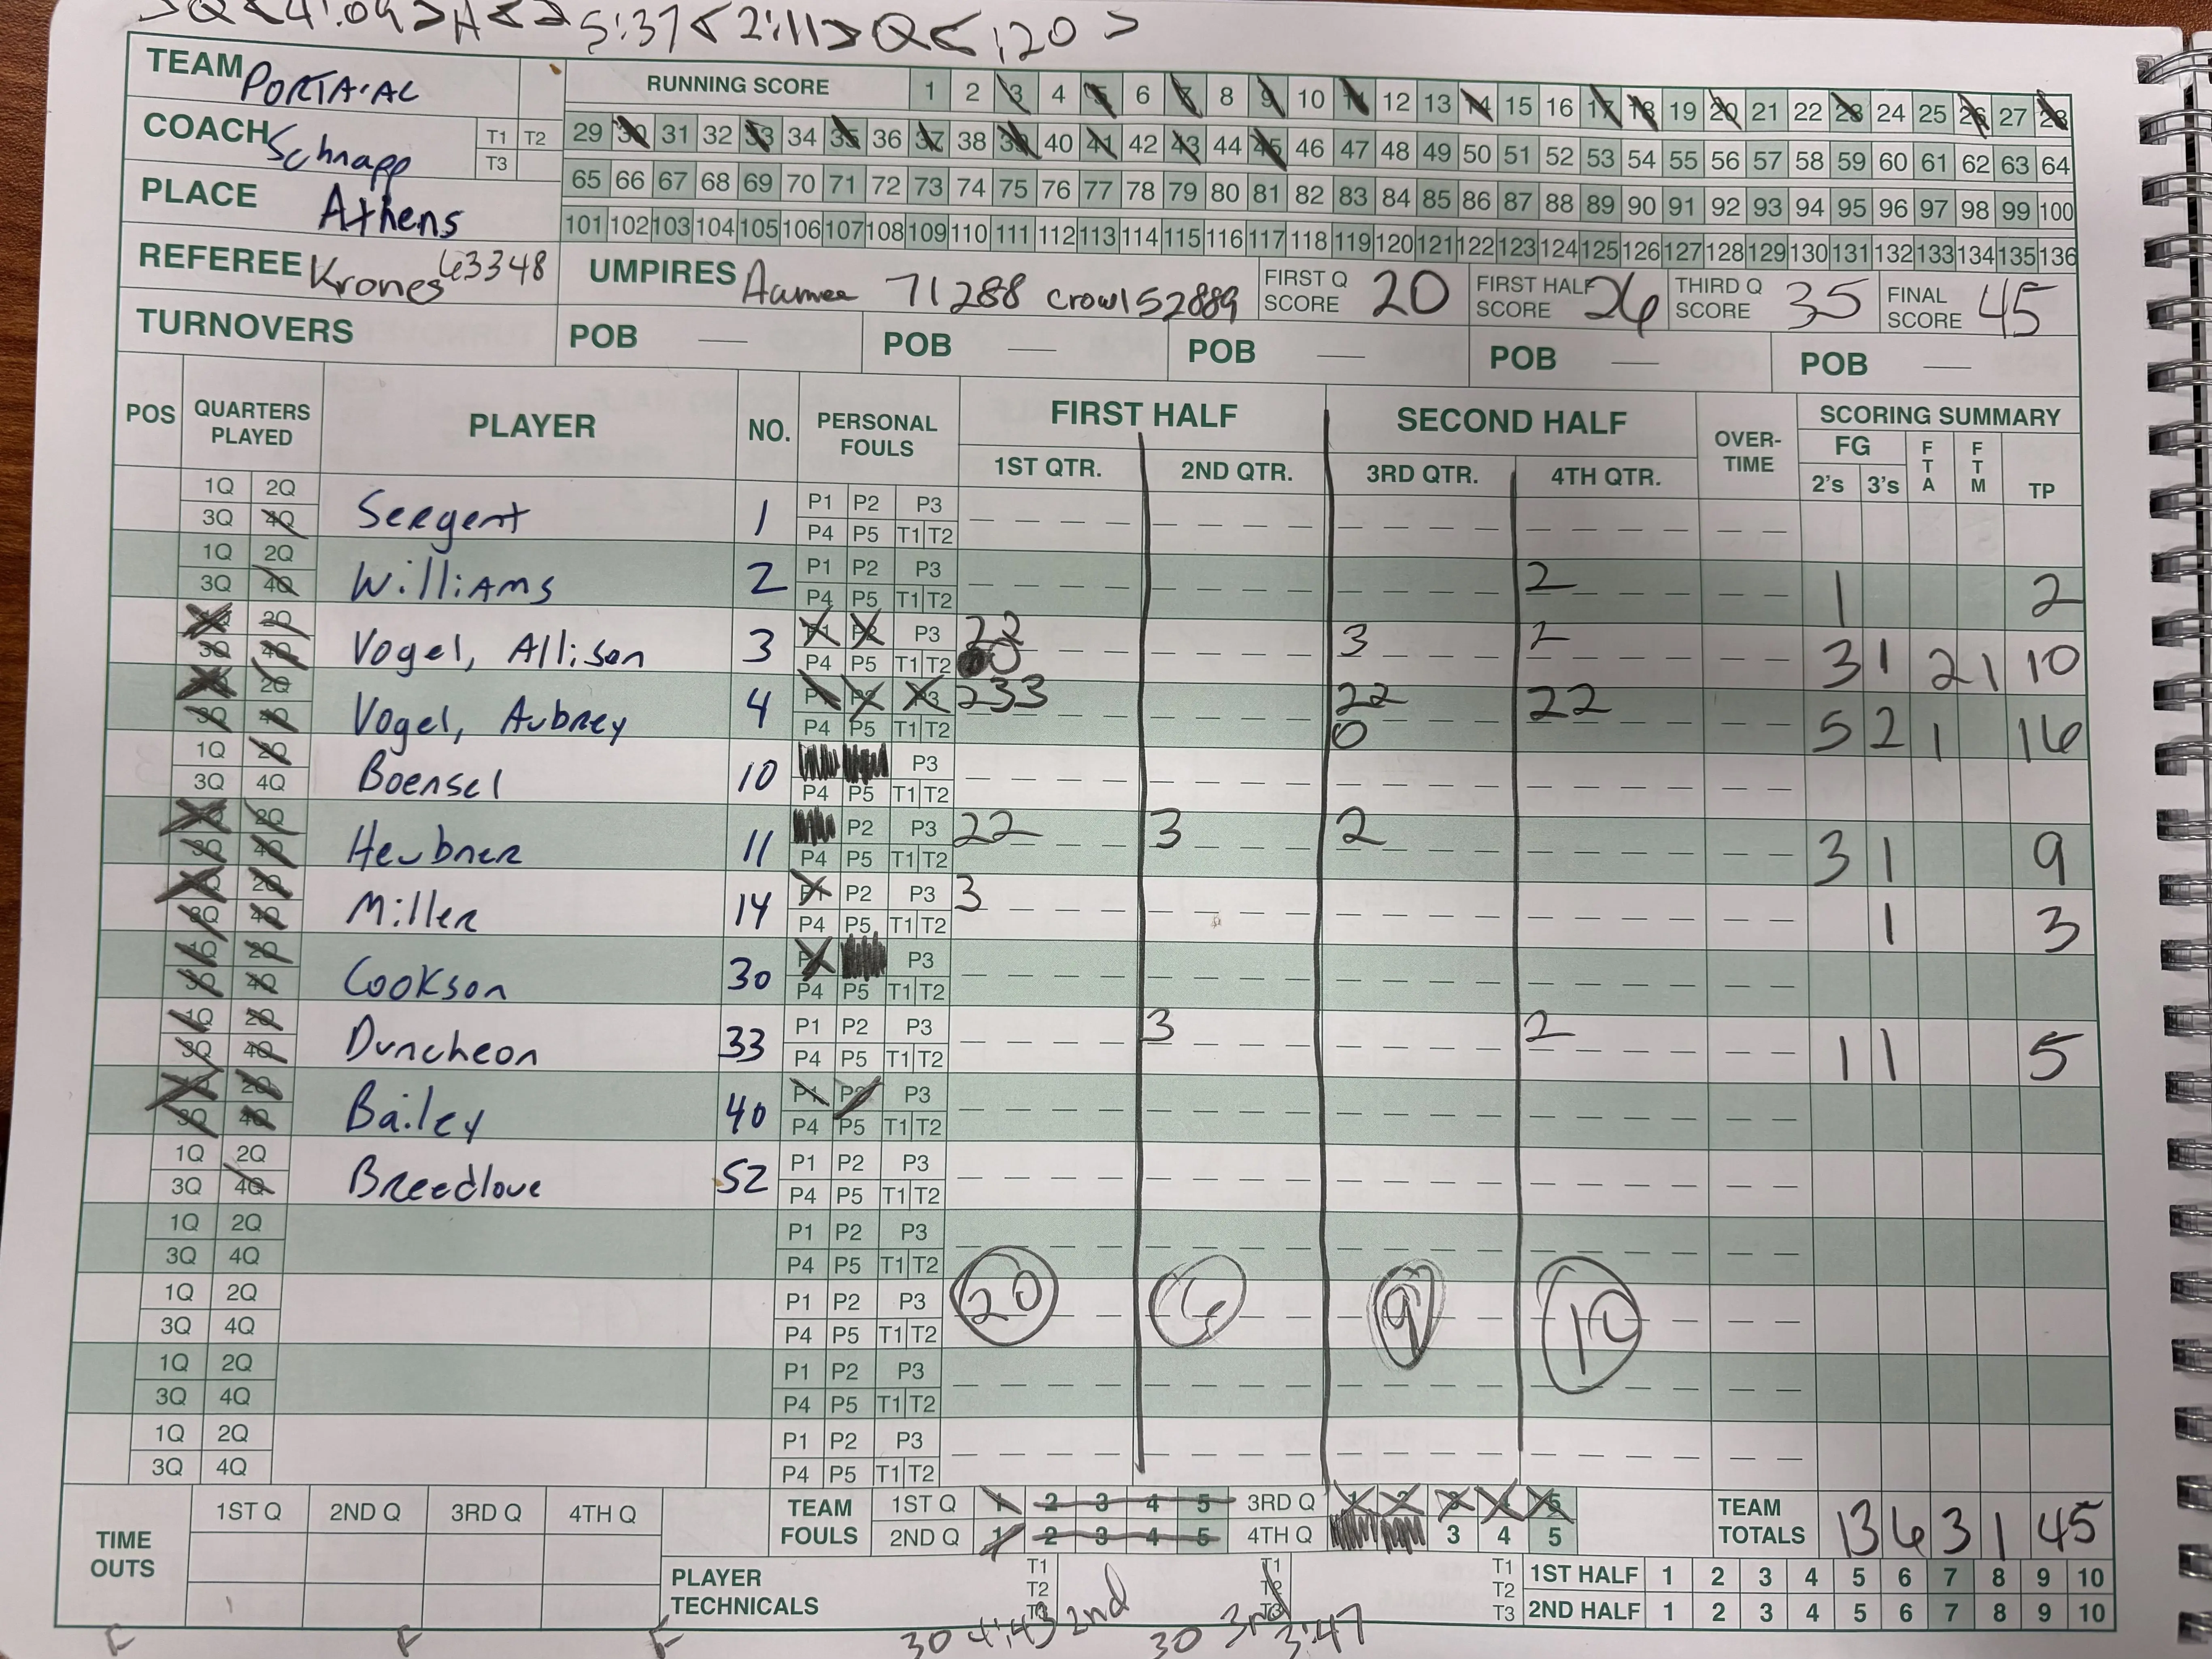 >Q<4:09>A<2 5:37<2:11>Q<:20>
TEAM PORTA-AC
RUNNING SCORE 1 2 3 4 5 6 7 8 9 10 11 12 13 14 15 16 17 18 19 20 21 22 23 24 25 26 27 28
COACH Schnapp T1 T2 T3
29 30 31 32 33 34 35 36 37 38 39 40 41 42 43 44 45 46 47 48 49 50 51 52 53 54 55 56 57 58 59 60 61 62 63 64
65 66 67 68 69 70 71 72 73 74 75 76 77 78 79 80 81 82 83 84 85 86 87 88 89 90 91 92 93 94 95 96 97 98 99 100
PLACE Athens
101 102 103 104 105 106 107 108 109 110 111 112 113 114 115 116 117 118 119 120 121 122 123 124 125 126 127 128 129 130 131 132 133 134 135 136
REFEREE Krones 63348 UMPIRES 71288 Crowl 52889 FIRST Q SCORE 20 FIRST HALF SCORE 26 THIRD Q SCORE 35 FINAL SCORE 45
TURNOVERS POB — POB — POB — POB — POB —
POS QUARTERS PLAYED PLAYER NO. PERSONAL FOULS FIRST HALF SECOND HALF OVER-TIME SCORING SUMMARY
1ST QTR. 2ND QTR. 3RD QTR. 4TH QTR. FG 2's 3's FTA FTM TP
1Q 2Q Sergent 1 P1 P2 P3
3Q 4Q P4 P5 T1 T2
1Q 2Q Williams 2 P1 P2 P3 2 1 2
3Q 4Q P4 P5 T1 T2
1Q 2Q Vogel, Allison 3 P1 P2 P3 22 3 2 3 1 2 1 10
3Q 4Q P4 P5 T1 T2 0
1Q 2Q Vogel, Aubrey 4 P1 P2 P3 233 22 22 5 2 1 16
3Q 4Q P4 P5 T1 T2 0
1Q 2Q Boensel 10 P3
3Q 4Q P4 P5 T1 T2
1Q 2Q Heubner 11 P2 P3 22 3 2 3 1 9
3Q 4Q P4 P5 T1 T2
1Q 2Q Miller 14 P1 P2 P3 3 1 3
3Q 4Q P4 P5 T1 T2
1Q 2Q Cookson 30 P1 P3
3Q 4Q P4 P5 T1 T2
1Q 2Q Duncheon 33 P1 P2 P3 3 2 1 1 5
3Q 4Q P4 P5 T1 T2
1Q 2Q Bailey 40 P1 P2 P3
3Q 4Q P4 P5 T1 T2
1Q 2Q Breedlove 52 P1 P2 P3
3Q 4Q P4 P5 T1 T2
1Q 2Q P1 P2 P3
3Q 4Q P4 P5 T1 T2
1Q 2Q P1 P2 P3 20 6 9 10
3Q 4Q P4 P5 T1 T2
1Q 2Q P1 P2 P3
3Q 4Q P4 P5 T1 T2
1Q 2Q P1 P2 P3
3Q 4Q P4 P5 T1 T2
TIME OUTS 1ST Q 2ND Q 3RD Q 4TH Q
TEAM FOULS 1ST Q 1 2 3 4 5 3RD Q 1 2 3 4 5 TEAM TOTALS 13 6 3 1 45
2ND Q 1 2 3 4 5 4TH Q 3 4 5
PLAYER TECHNICALS T1 T2 T3 T1 T2 T3 T1 T2 T3 1ST HALF 1 2 3 4 5 6 7 8 9 10
2ND HALF 1 2 3 4 5 6 7 8 9 10
F F F 30 4:43 2nd 30 3rd 3:47